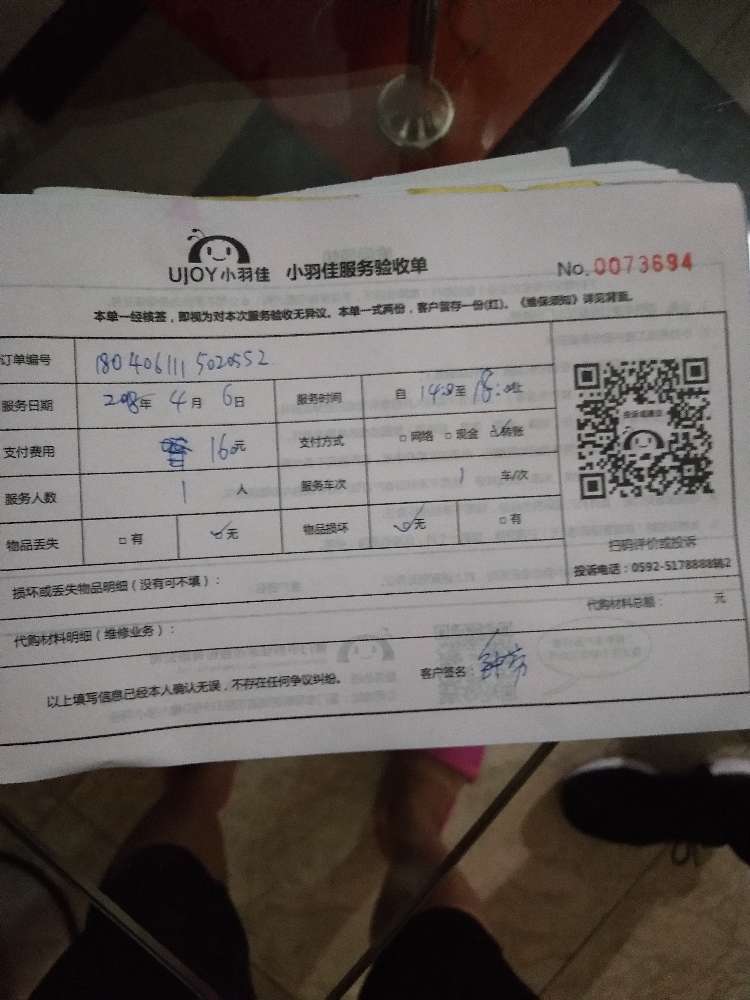 UJOY小羽佳 小羽佳服务验收单 No.0073694
本单一经核签，即视为对本次服务验收无异议。本单一式两份，客户留存一份(红)。《维保须知》详见背面。
订单编号 1804061115020552
服务日期 2018年 4月 6日 服务时间 自 14:0至 18:0止
支付费用 160元 支付方式 □网络 □现金 ☑转账
服务人数 1 人 服务车次 1 车/次
物品丢失 □有 ☑无 物品损坏 ☑无 □有
投诉或建议
扫码评价或投诉
投诉电话：0592-5178888转2
损坏或丢失物品明细（没有可不填）：
代购材料明细（维修业务）： 代购材料总额： 元
以上填写信息已经本人确认无误，不存在任何争议纠纷。 客户签名：